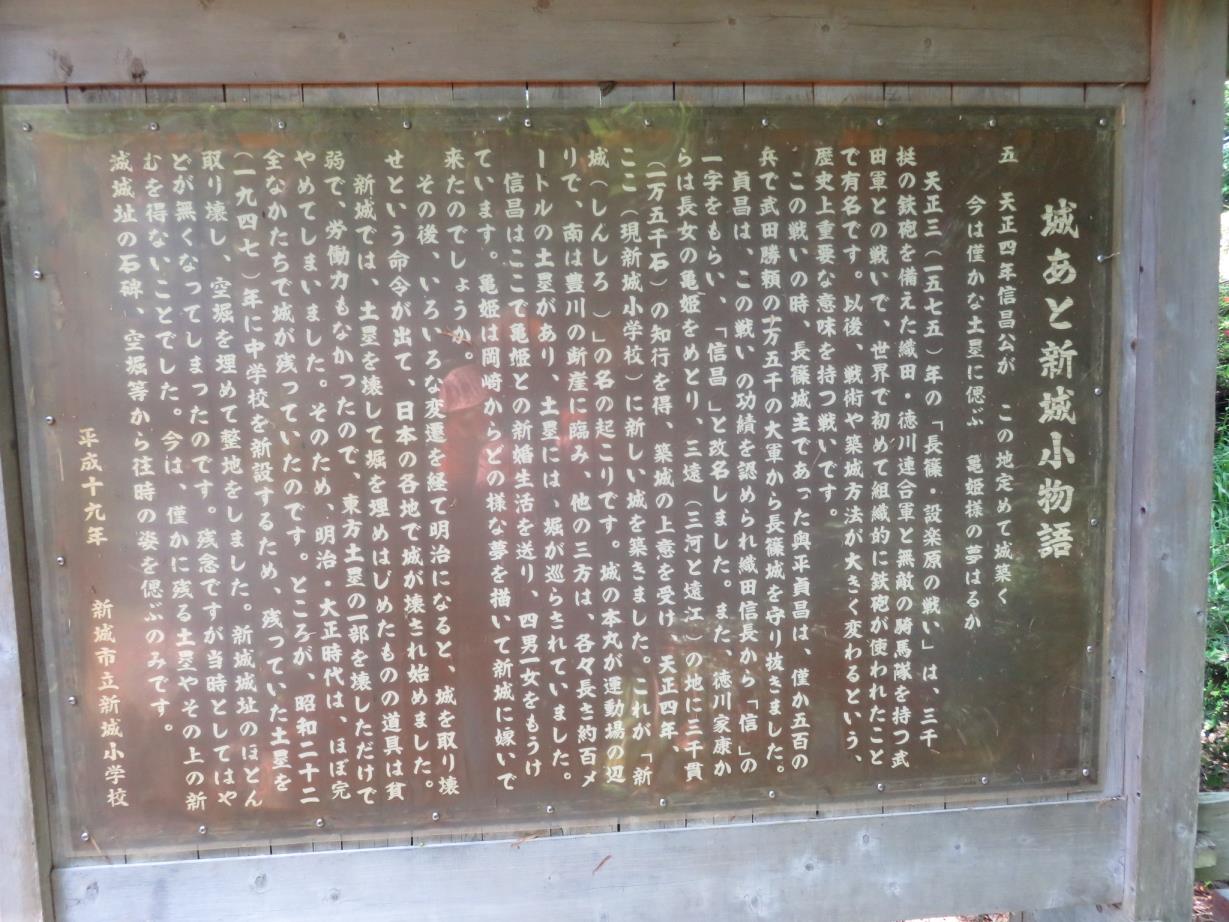 城あと新城小物語
五　天正四年信昌公が　この地定めて城築く
今は僅かな土塁に偲ぶ　亀姫様の夢はるか
天正三（一五七五）年の「長篠・設楽原の戦い」は、三千
挺の鉄砲を備えた織田・徳川連合軍と無敵の騎馬隊を持つ武
田軍との戦いで、世界で初めて組織的に鉄砲が使われたこと
で有名です。以後、戦術や築城方法が大きく変わるという、
歴史上重要な意味を持つ戦いです。
この戦いの時、長篠城主であった奥平貞昌は、僅か五百の
兵で武田勝頼の一万五千の大軍から長篠城を守り抜きました。
貞昌は、この戦いの功績を認められ織田信長から「信」の
一字をもらい、「信昌」と改名しました。また、徳川家康か
らは長女の亀姫をめとり、三遠（三河と遠江）の地に三千貫
（二万五千石）の知行を得、築城の上意を受け、天正四年
ここ（現新城小学校）に新しい城を築きました。これが「新
城（しんしろ）」の名の起こりです。城の本丸が運動場の辺
りで、南は豊川の断崖に臨み、他の三方は、各々長さ約百メ
ートルの土塁があり、土塁には、堀が巡らされていました。
信昌はここで亀姫との新婚生活を送り、四男一女をもうけ
ています。亀姫は岡崎からどの様な夢を描いて新城に嫁いで
来たのでしょうか。
その後、いろいろな変遷を経て明治になると、城を取り壊
せという命令が出て、日本の各地で城が壊され始めました。
新城では、土塁を壊して堀を埋めはじめたものの道具は貧
弱で、労働力もなかったので、東方土塁の一部を壊しただけで
やめてしまいました。そのため、明治・大正時代は、ほぼ完
全なかたちで城が残っていたのです。ところが、昭和二十二
（一九四七）年に中学校を新設するため、残っていた土塁を
取り壊し、空堀を埋めて整地をしました。新城城址のほとん
どが無くなってしまったのです。残念ですが当時としてはや
むを得ないことでした。今は、僅かに残る土塁やその上の新
城城址の石碑、空堀等から往時の姿を偲ぶのみです。
平成十九年　　新城市立新城小学校